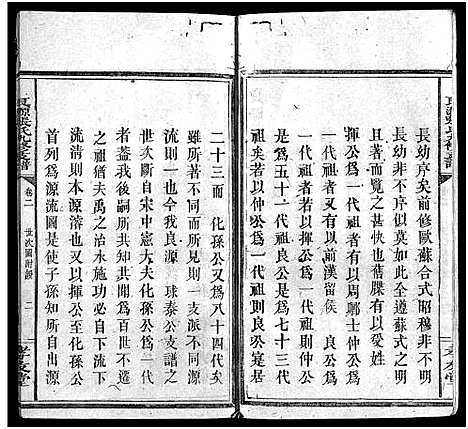 長幼序矣前修歐蘇合式昭穆非不明
長幼非不序似莫如此全遵蘇式之明
著因而覽之甚快也舊牒有以受姓
揮公爲一代祖者有以周鄲士仲公爲
一代祖者又有以前漢留侯　良公爲
一代祖者以揮公爲一代祖則仲公
爲五十一代祖良公是爲七十三代
祖矣若以仲公爲一代祖則良公是爲
二十三而　化孫公又爲八十四代矣
雖所若不同而所則一支派不不同
而源同也今我良源　球泰公支譜之
世次斷自宋中憲大夫化孫公爲一代
者蓋我後嗣所共知其開爲百世不遷
之祖猶夫禹之治水施功必自下下
流清則本源溶也又以揮公至化孫公
首列爲源流圖是使子孫知所自出源
卷二
世次圖附證
二